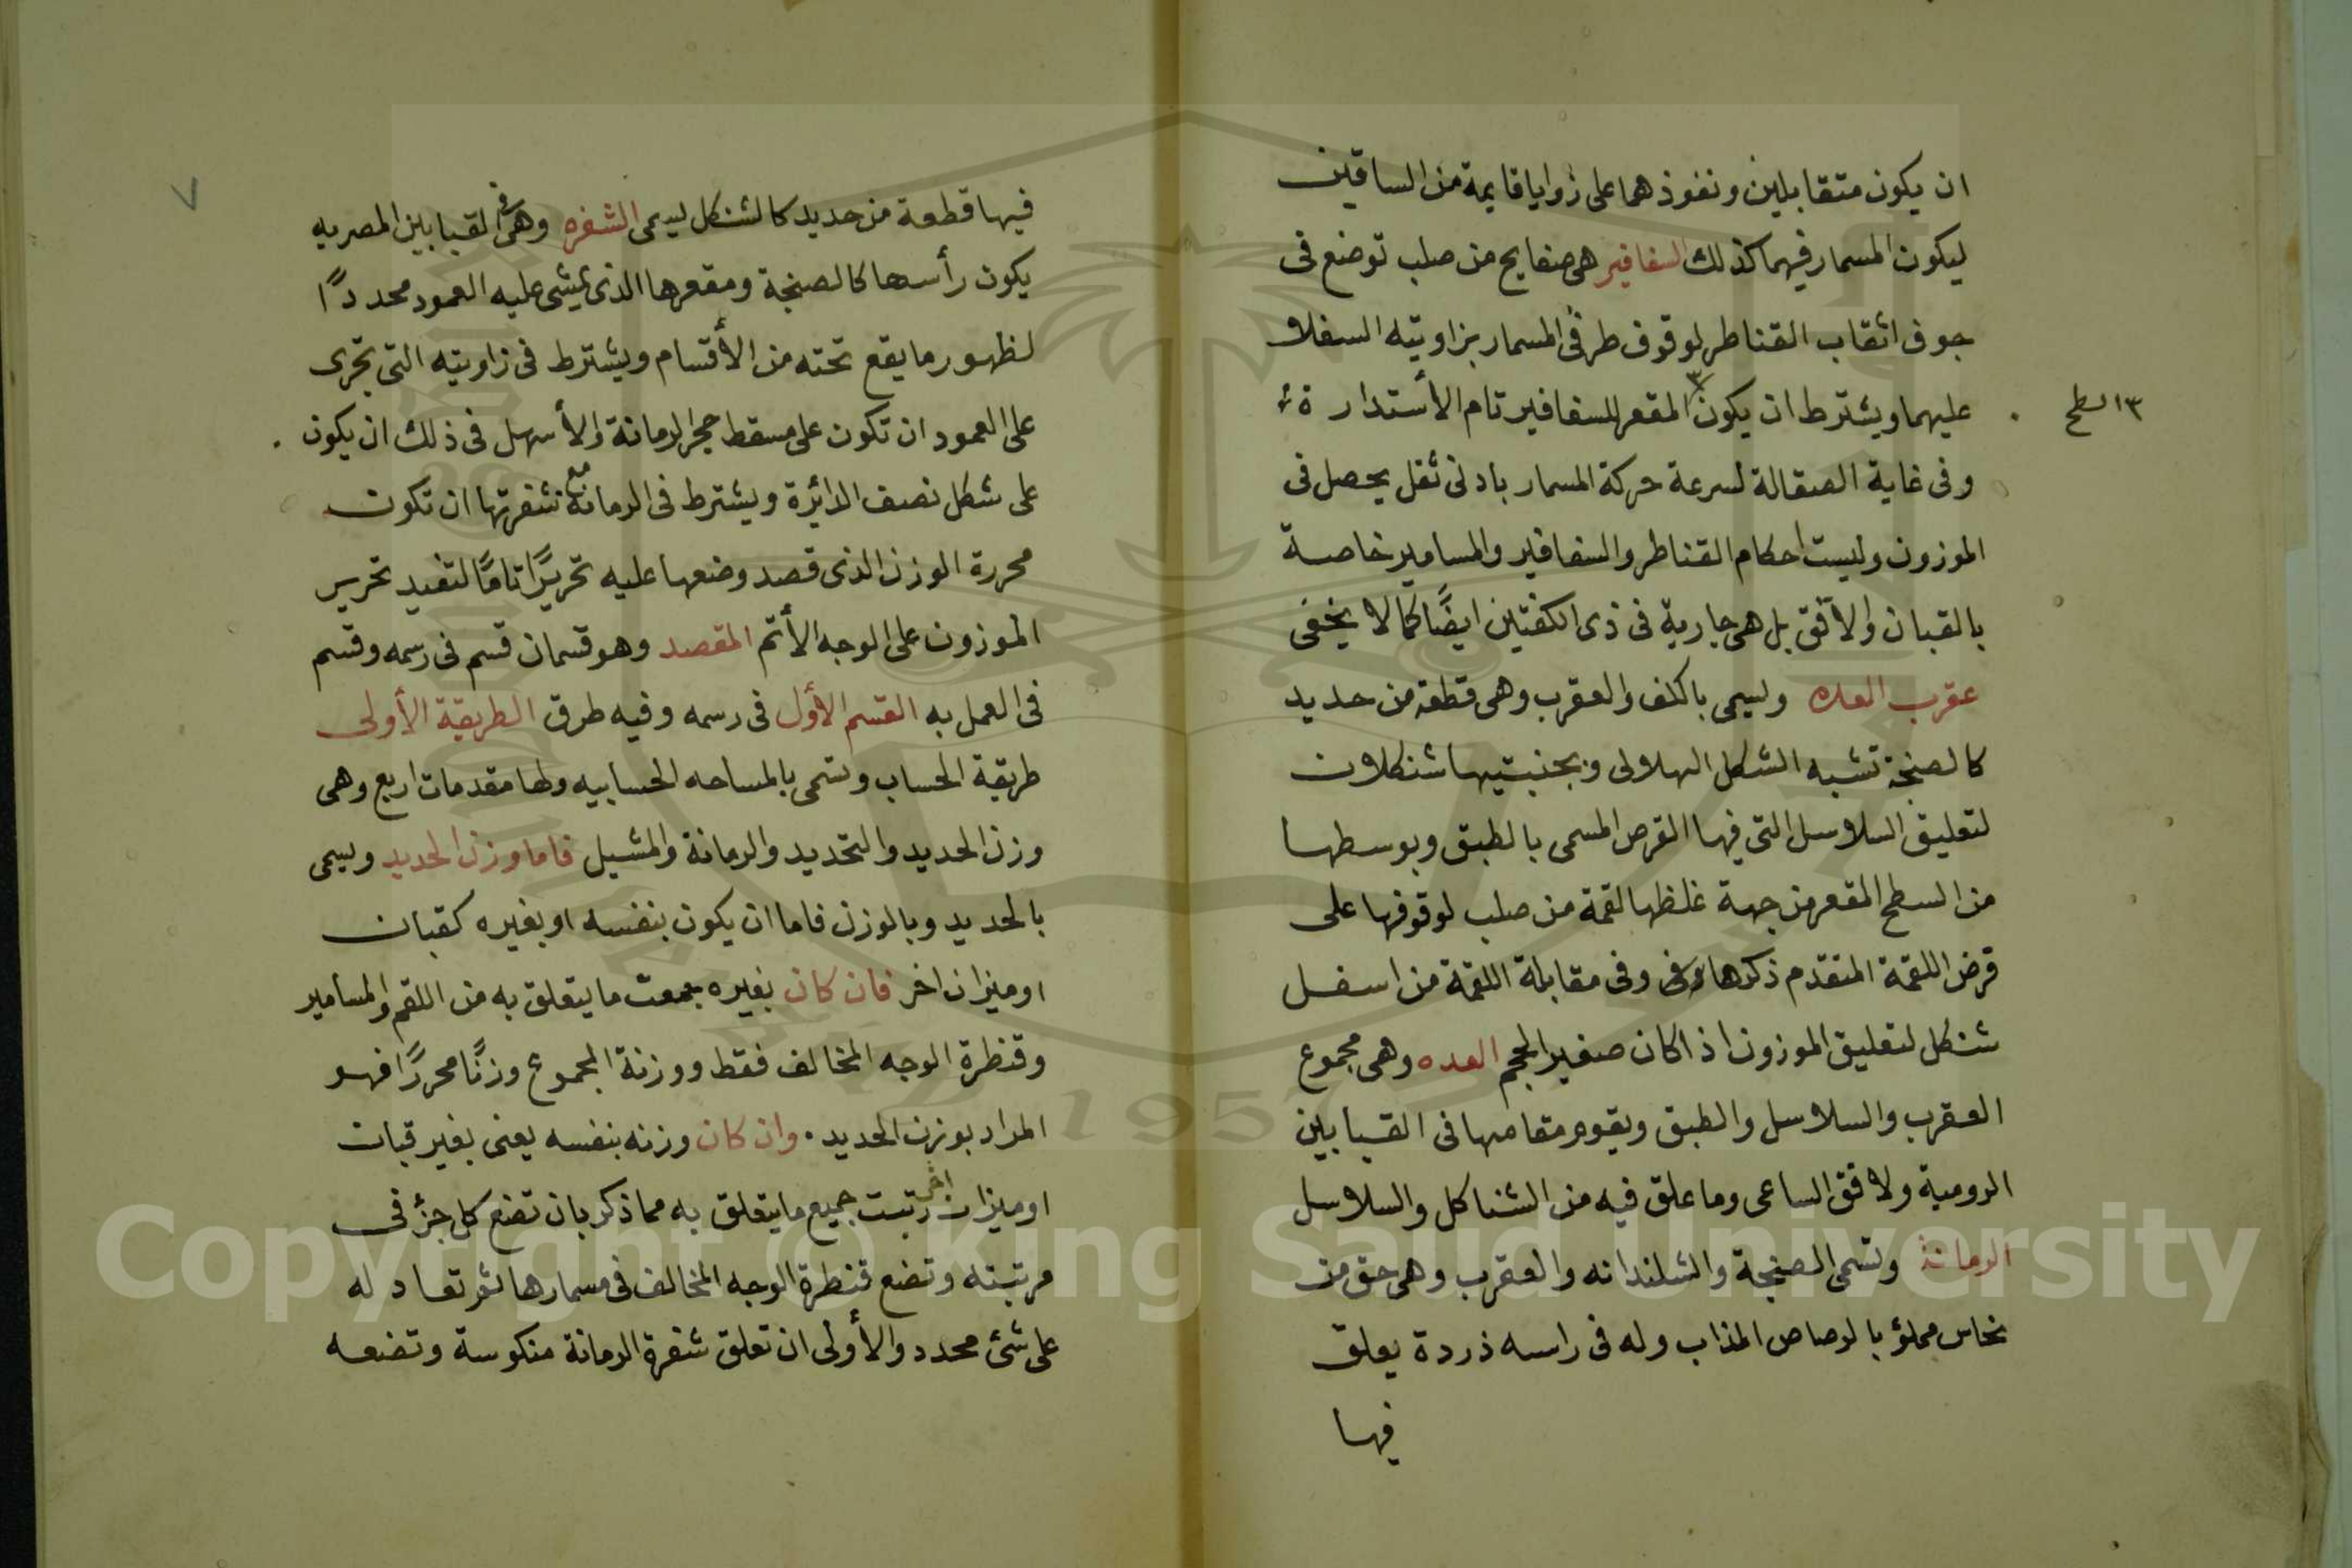 ان يكون متقابلين ونفوذهما على زوايا قايمة من الساقين
ليكون المسمار فيهما كذلك السفافير هى صفايح من صلب توضع فى
جوف اثقاب القناطر لوقوف طرفى المسمار بزاويتيه السفلا
عليهما ويشترط ان يكون المقعر للسفافير تام الأستدارة
١٣ لسطح
وفى غاية الصقالة لسرعة حركة المسمار بادنى ثقل يحصل فى
الموزون وليست احكام القناطر والسفافير والمسامير خاصة
بالقبان والافق بل هى جارية فى ذى الكفتين ايضًا كما لا يخفى
عقرب العده وليسمى بالكف والعقرب وهى قطعة من حديد
كالصنجة تشبه الشكل الهلالى وبجنبتيها شنكلان
لتعليق السلاسل التى فيها القرص المسمى بالطبق وبوسطها
من السطح المقعر من جهة غلظها لقمة من صلب لوقوفها على
قرض اللقمة المتقدم ذكرها وفى مقابلة اللقمة من اسفل
شنكل لتعليق الموزون اذا كان صغير الحجم العده وهى مجموع
العقرب والسلاسل والطبق ويقوم مقامها فى القبابين
الرومية ولافق الساعى وما علق فيه من الشناكل والسلاسل
الرمانة وتسمى الصنجة والشلندانه والعقرب وهى حق من
نحاس مملؤ بالرصاص المذاب وله فى راسه ذردة يعلق
فيها
٧
فيها قطعة من حديد كالشنكل ليسمى الشفره وهى فى القبابين المصريه
يكون رأسها كالصنجة ومقعرها الذى يمشى عليه العمود محددًا
لظهور ما يقع تحته من الأقسام ويشترط فى زاويته التى تجرى
على العمود ان تكون على مسقط حجر الرمانة والأسهل فى ذلك ان يكون
على شكل نصف الدائرة ويشترط فى الرمانة مع شفرتها ان تكون
محررة الوزن الذى قصد وضعها عليه تحريرًا تامًا لتفيد تحرير
الموزون على الوجه الأتم المقصد وهو قسمان قسم فى رسمه وقسم
فى العمل به القسم الأول فى رسمه وفيه طرق الطريقة الأولى
طريقة الحساب وتسمى بالمساحه الحسابيه ولها مقدمات اربع وهى
وزن الحديد والتحديد والرمانة والمشيل فاما وزن الحديد ويسمى
بالحديد وبالوزن فاما ان يكون بنفسه او بغيره كقبان
او ميزان اخر فان كان بغيره جمعت ما يتعلق به من اللقم والمسامير
وقنطرة الوجه المخالف فقط ووزنة المجموع وزنًا محررًا فهو
المراد بوزن الحديد ۰ وان كان وزنه بنفسه يعنى بغير قبان
او ميزان اخر رتبت جميع ما يتعلق به مما ذكر بان تضع كل جزؤ فى
مرتبته وتضع قنطرة الوجه المخالف فى مسمارها ثم تعادله
على شئ محدد والأولى ان تعلق شفرة الرمانة منكوسة وتضعه
Copyright © King Saud University
1957